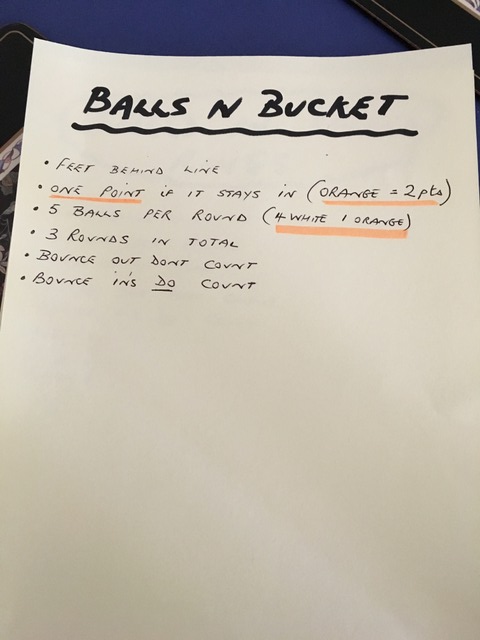 BALLS N BUCKET
• FEET BEHIND LINE
• ONE POINT IF IT STAYS IN (ORANGE = 2pts)
• 5 BALLS PER ROUND (4 WHITE 1 ORANGE)
• 3 ROUNDS IN TOTAL
• BOUNCE OUT DONT COUNT
• BOUNCE IN'S DO COUNT